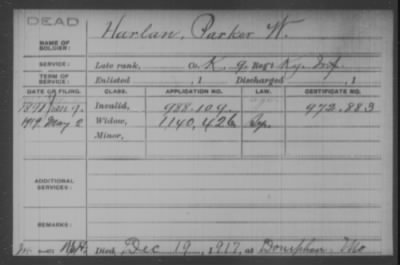 DEAD
NAME OF SOLDIER: Harlan, Parker W.
SERVICE: Late rank, Co. K, 9 Reg't Ky. Inf.
TERM OF SERVICE: Enlisted , 1 Discharged , 1
DATE OF FILING. CLASS. APPLICATION NO. LAW. CERTIFICATE NO.
Invalid, 988.109. 972.883
1919. May 2 Widow, 1140,426
Minor,
ADDITIONAL SERVICES:
REMARKS:
Died Dec 19, 1917, at Doniphan Mo